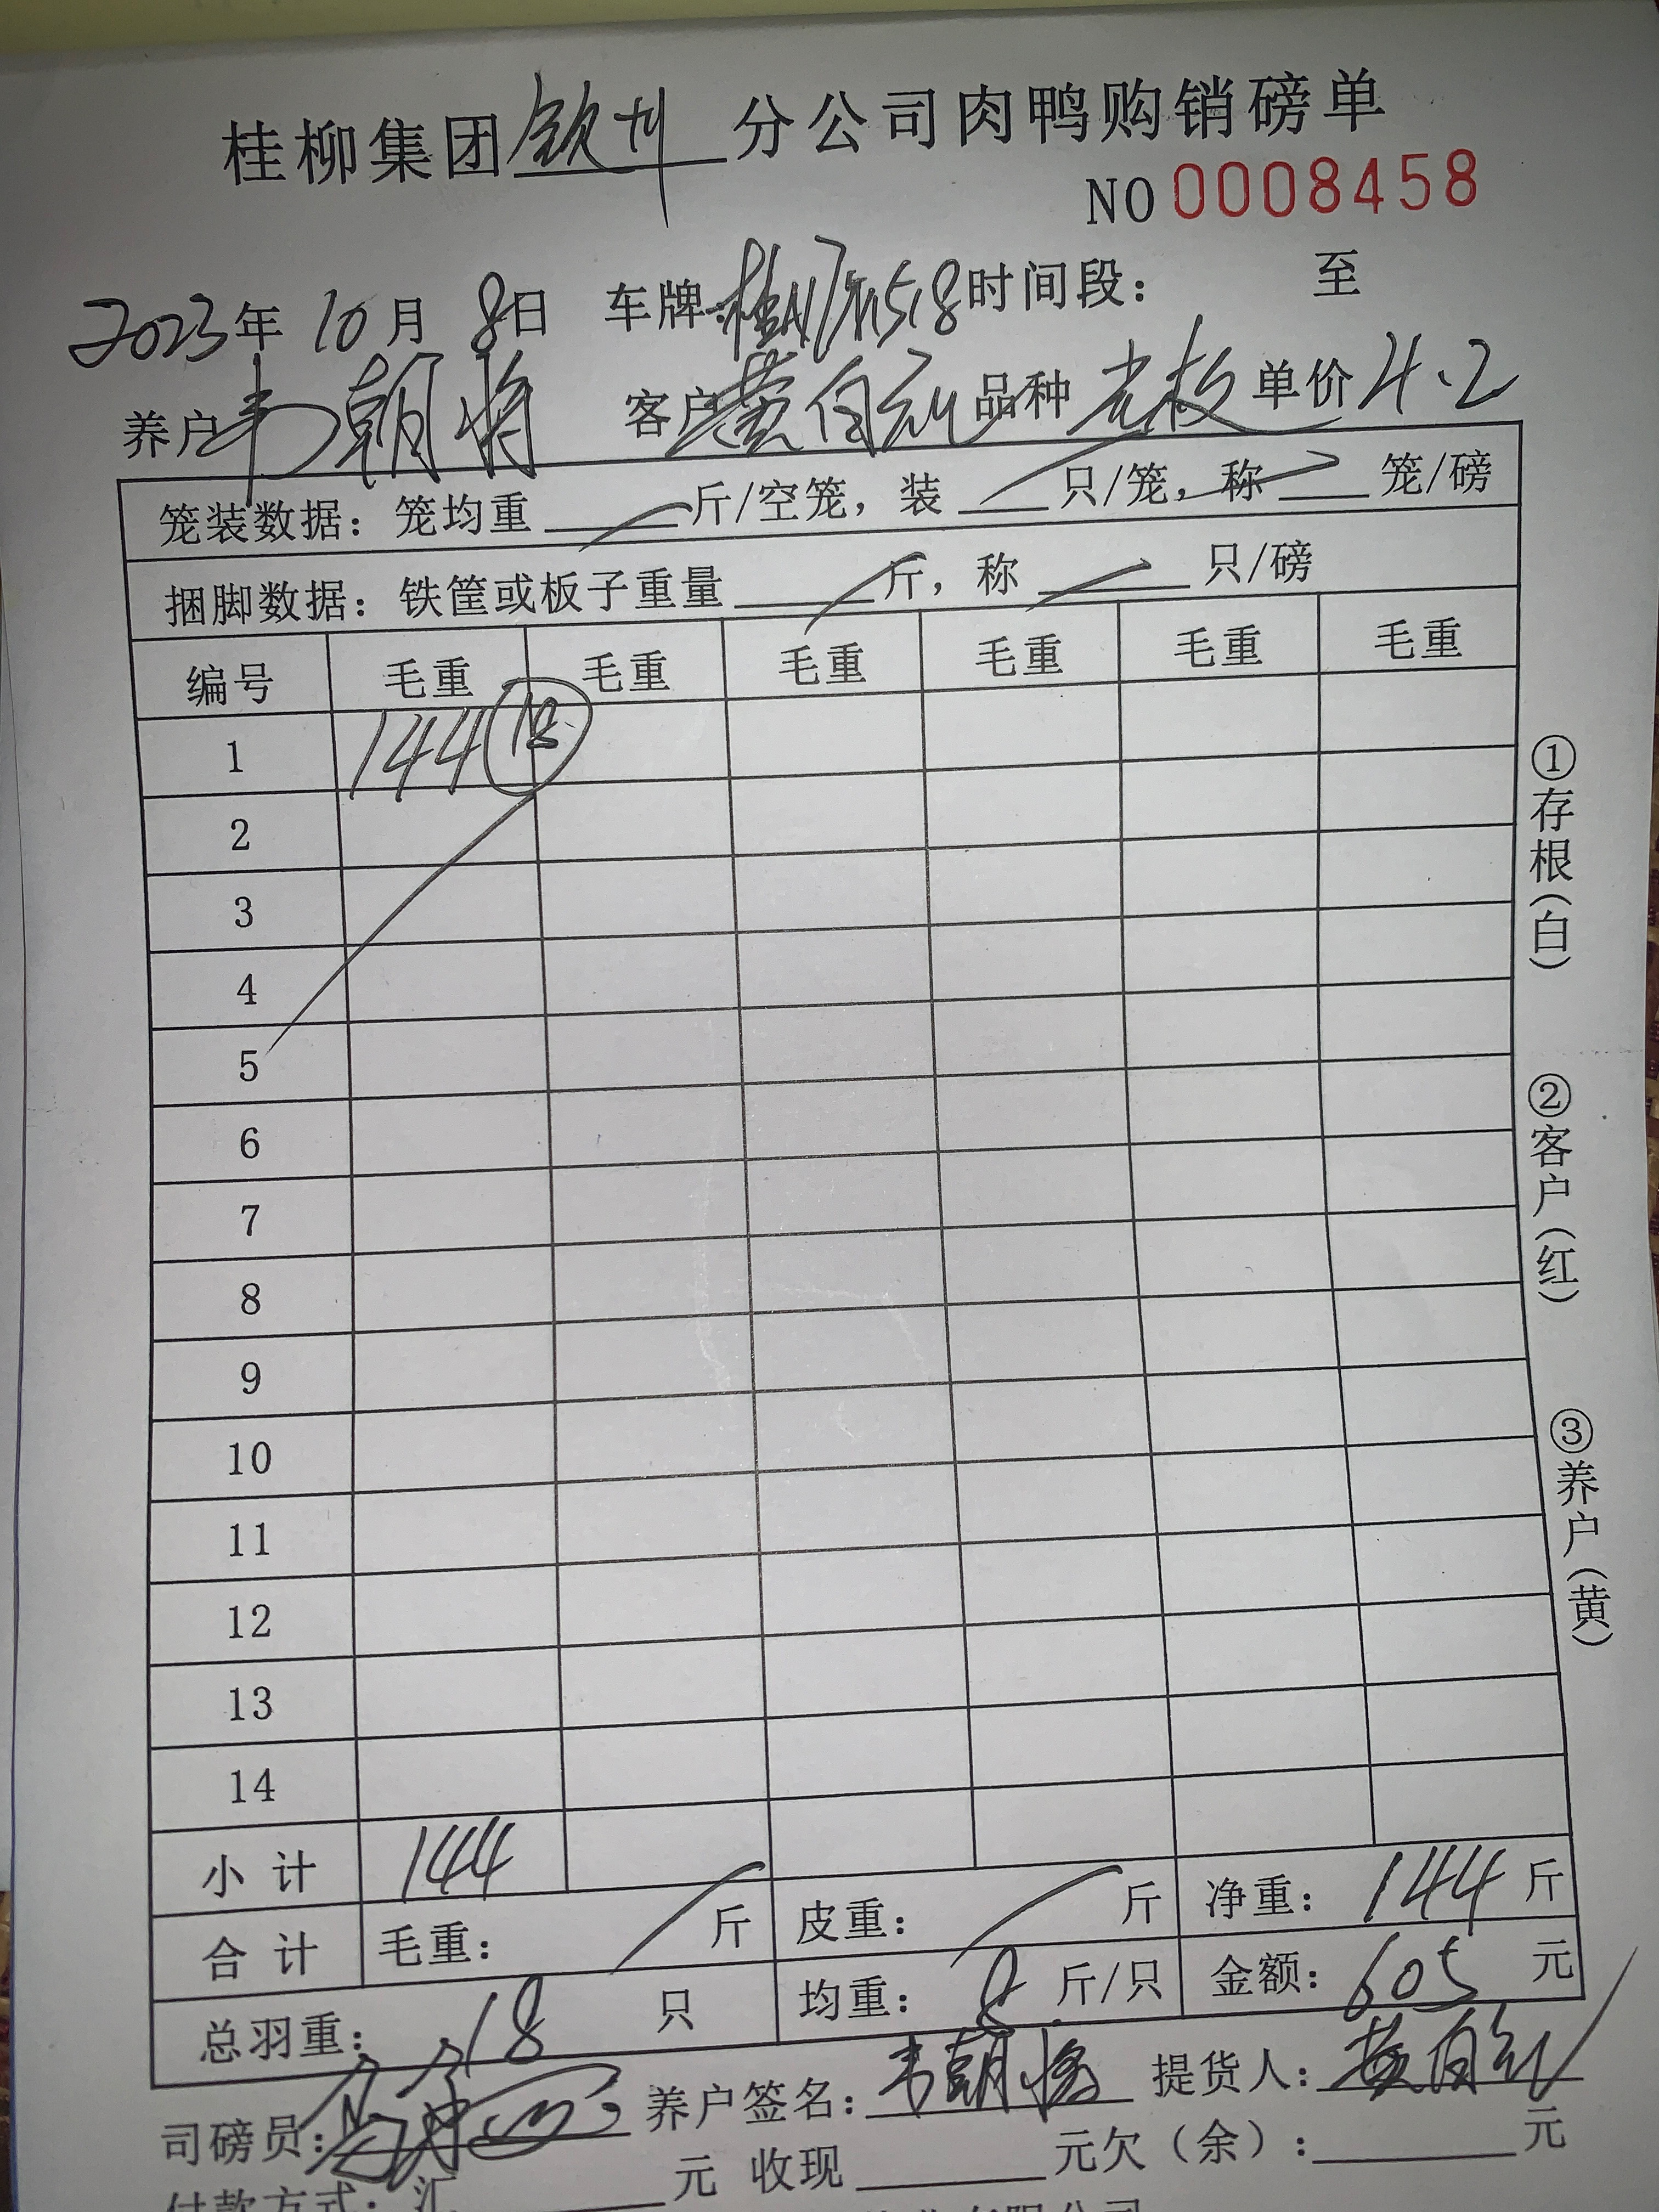 桂柳集团钦州分公司肉鸭购销磅单
NO 0008458
2023年 10月 8日 车牌: 时间段: 至
养户韦朝将 客户黄自 品种 单价4.2
笼装数据: 笼均重 斤/空笼, 装 只/笼, 称 笼/磅
捆脚数据: 铁筐或板子重量 斤, 称 只/磅
编号 毛重 毛重 毛重 毛重 毛重 毛重
1 144 18
2
3
4
5
6
7
8
9
10
11
12
13
14
小计 144
合计 毛重: 斤 皮重: 斤 净重: 144斤
总羽重: 18 只 均重: 8 斤/只 金额: 605 元
司磅员: 养户签名: 韦朝将 提货人: 黄自
付款方式: 汇 元 收现 元欠(余): 元
①存根(白)
②客户(红)
③养户(黄)